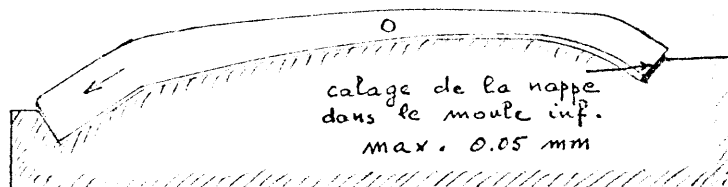 O
calage de la nappe
dans le moule inf.
max. 0.05 mm